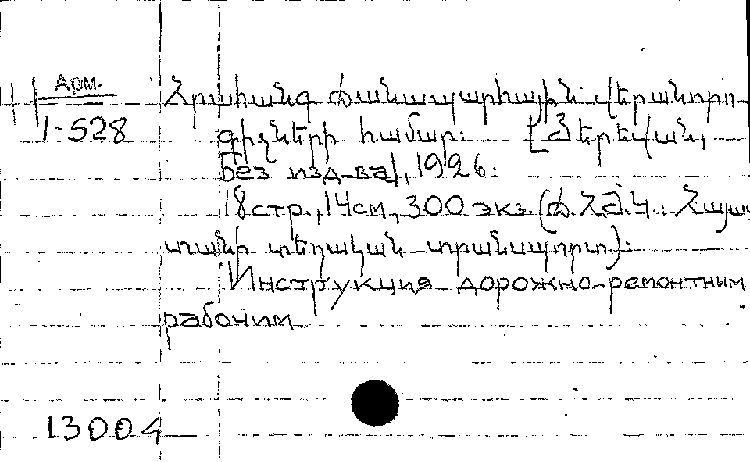 Арм.
1-528
Հրահանգ ճանապարհային վերանորո
գիչների համար: [Յերեվան,
без изд-ва], 1926.
18 стр., 14 см, 300 экз. (Հայաս
տանի տեղական տրանսպորտ):
Инструкция дорожно-ремонтним
рабочим
13004